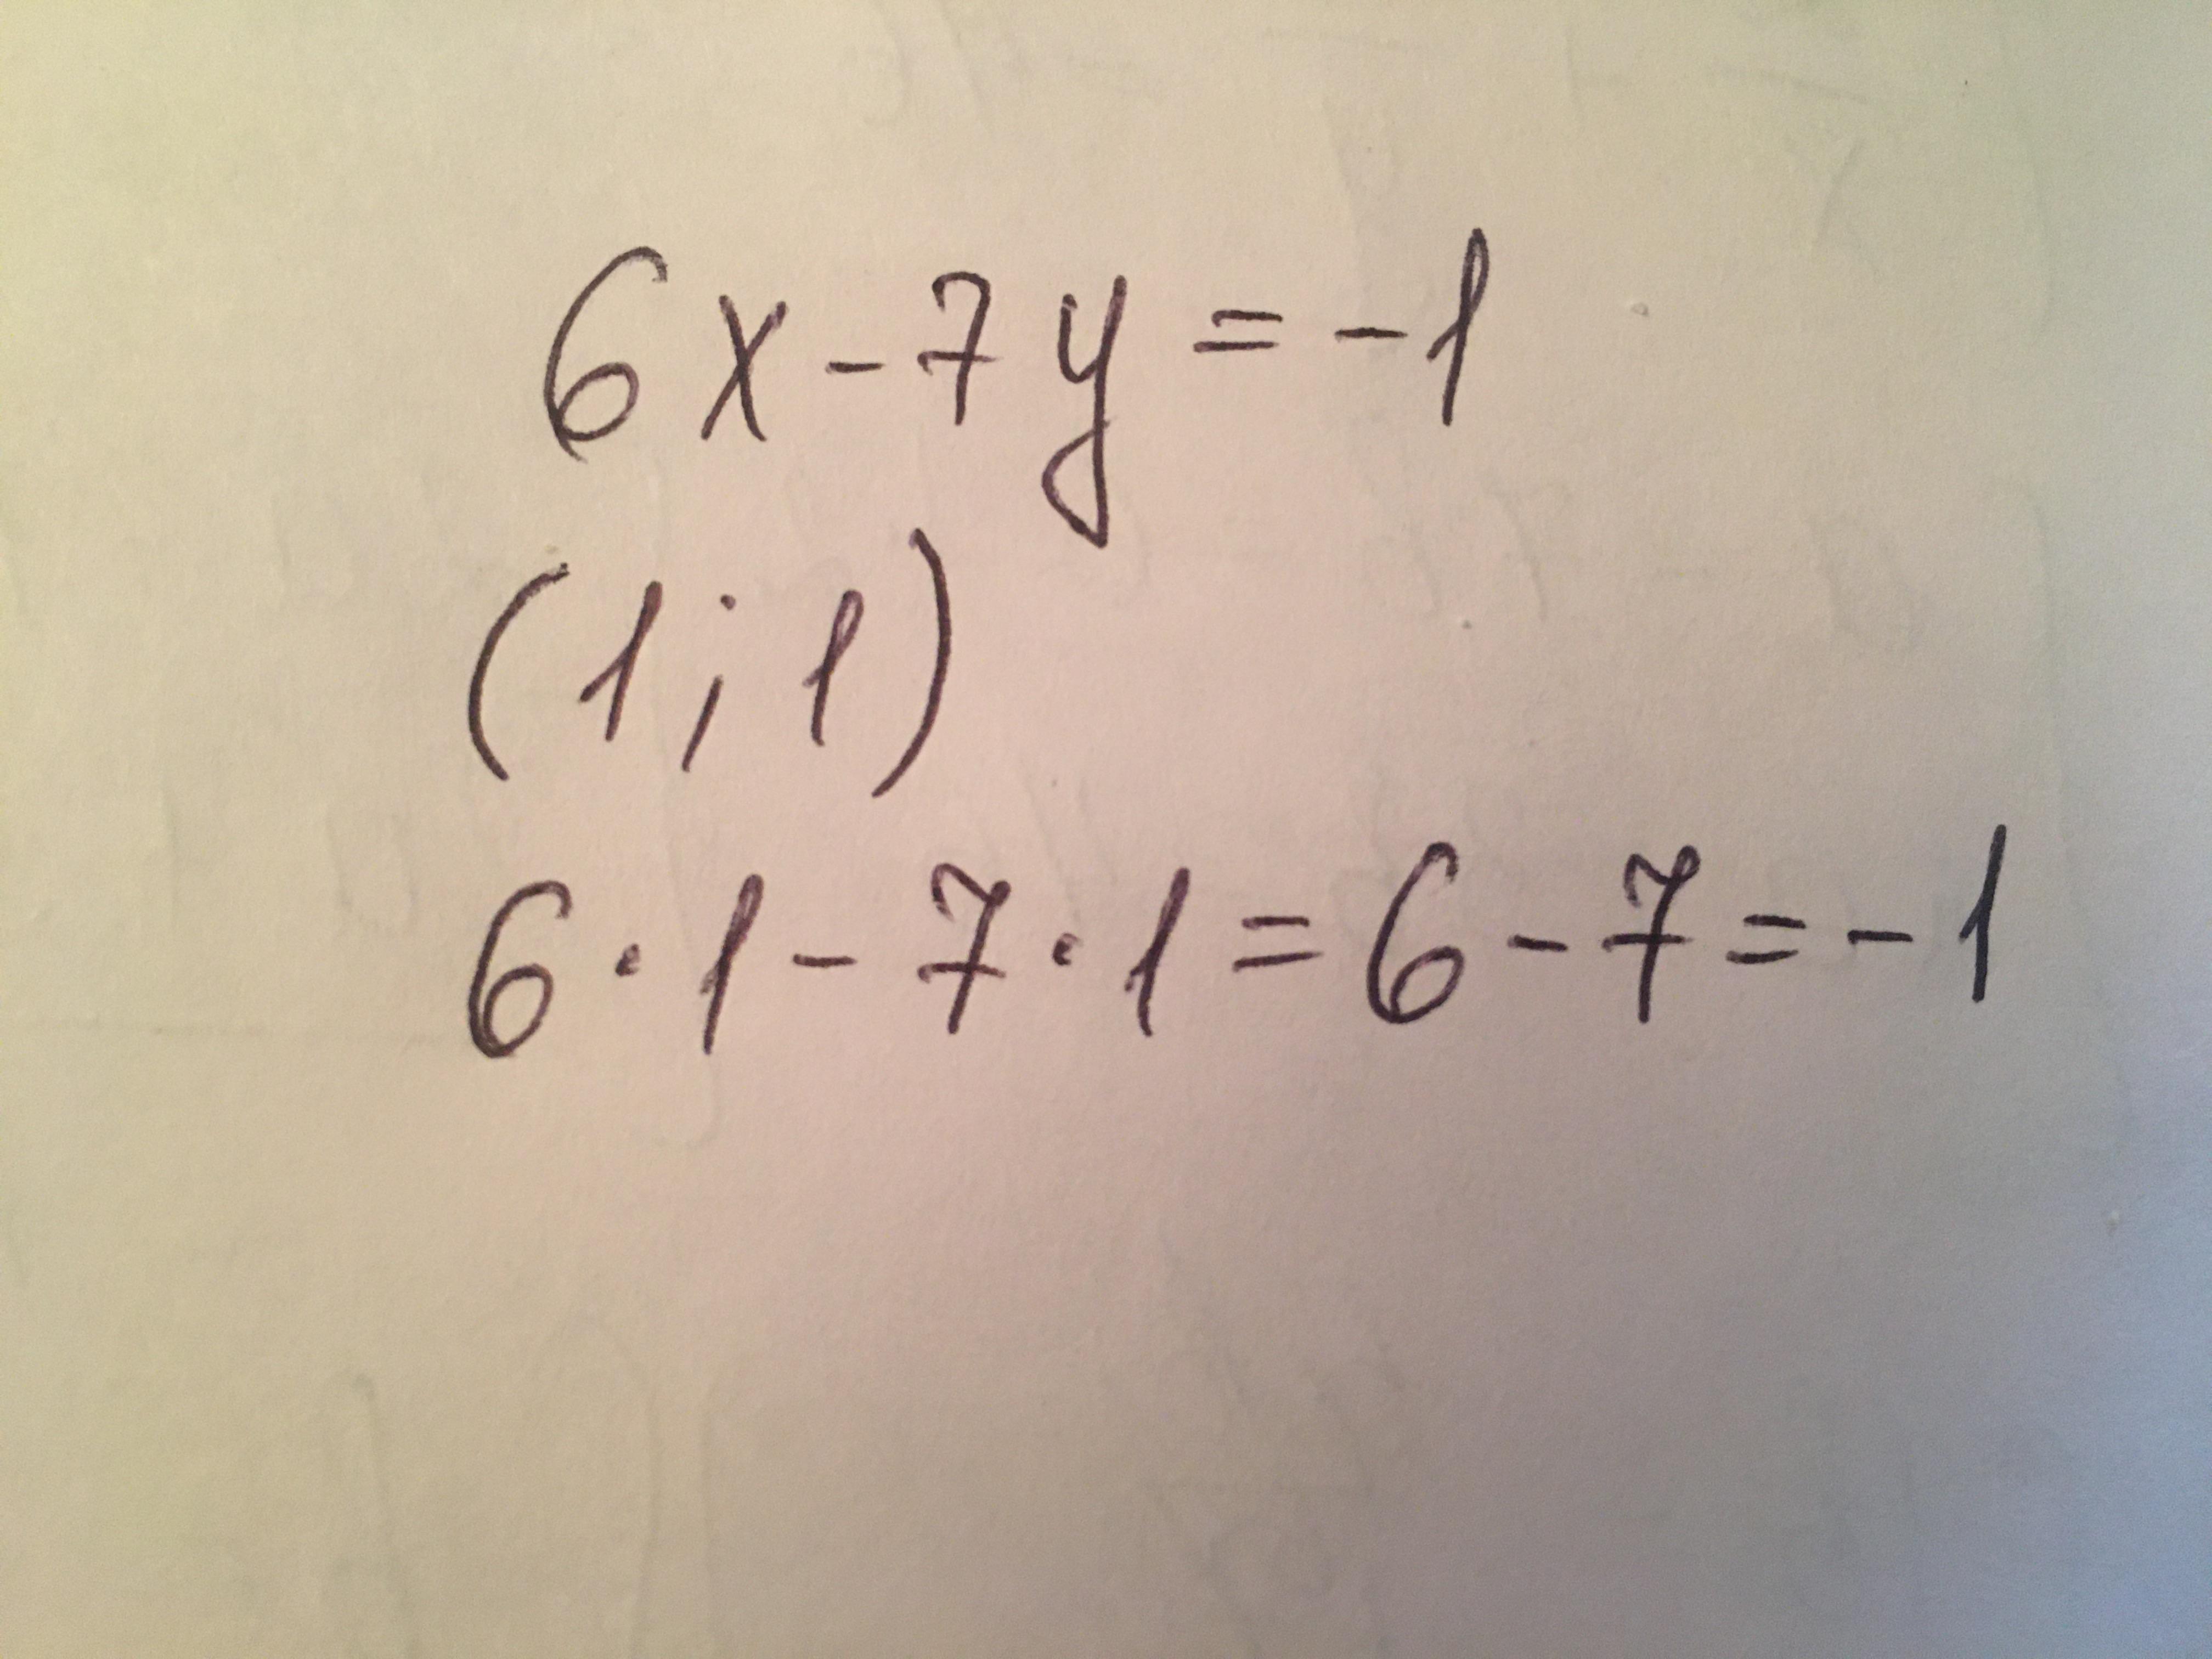 6x-7y=-1
(1;1)
6·1-7·1=6-7=-1